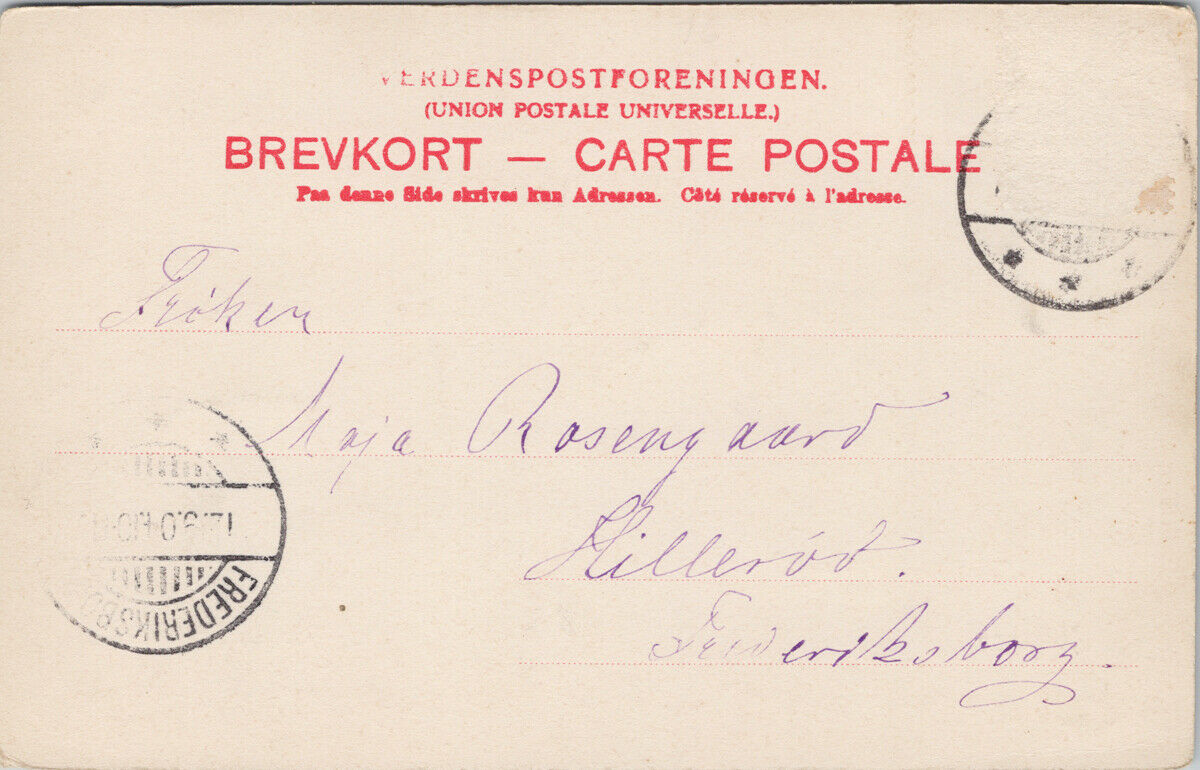 VERDENSPOSTFORENINGEN.
(UNION POSTALE UNIVERSELLE.)
BREVKORT — CARTE POSTALE
Paa denne Side skrives kun Adressen. Côté réservé à l'adresse.
Frøken
Maja Rosengaard
Hillerød.
Frederiksborg.
FREDERIKSBO